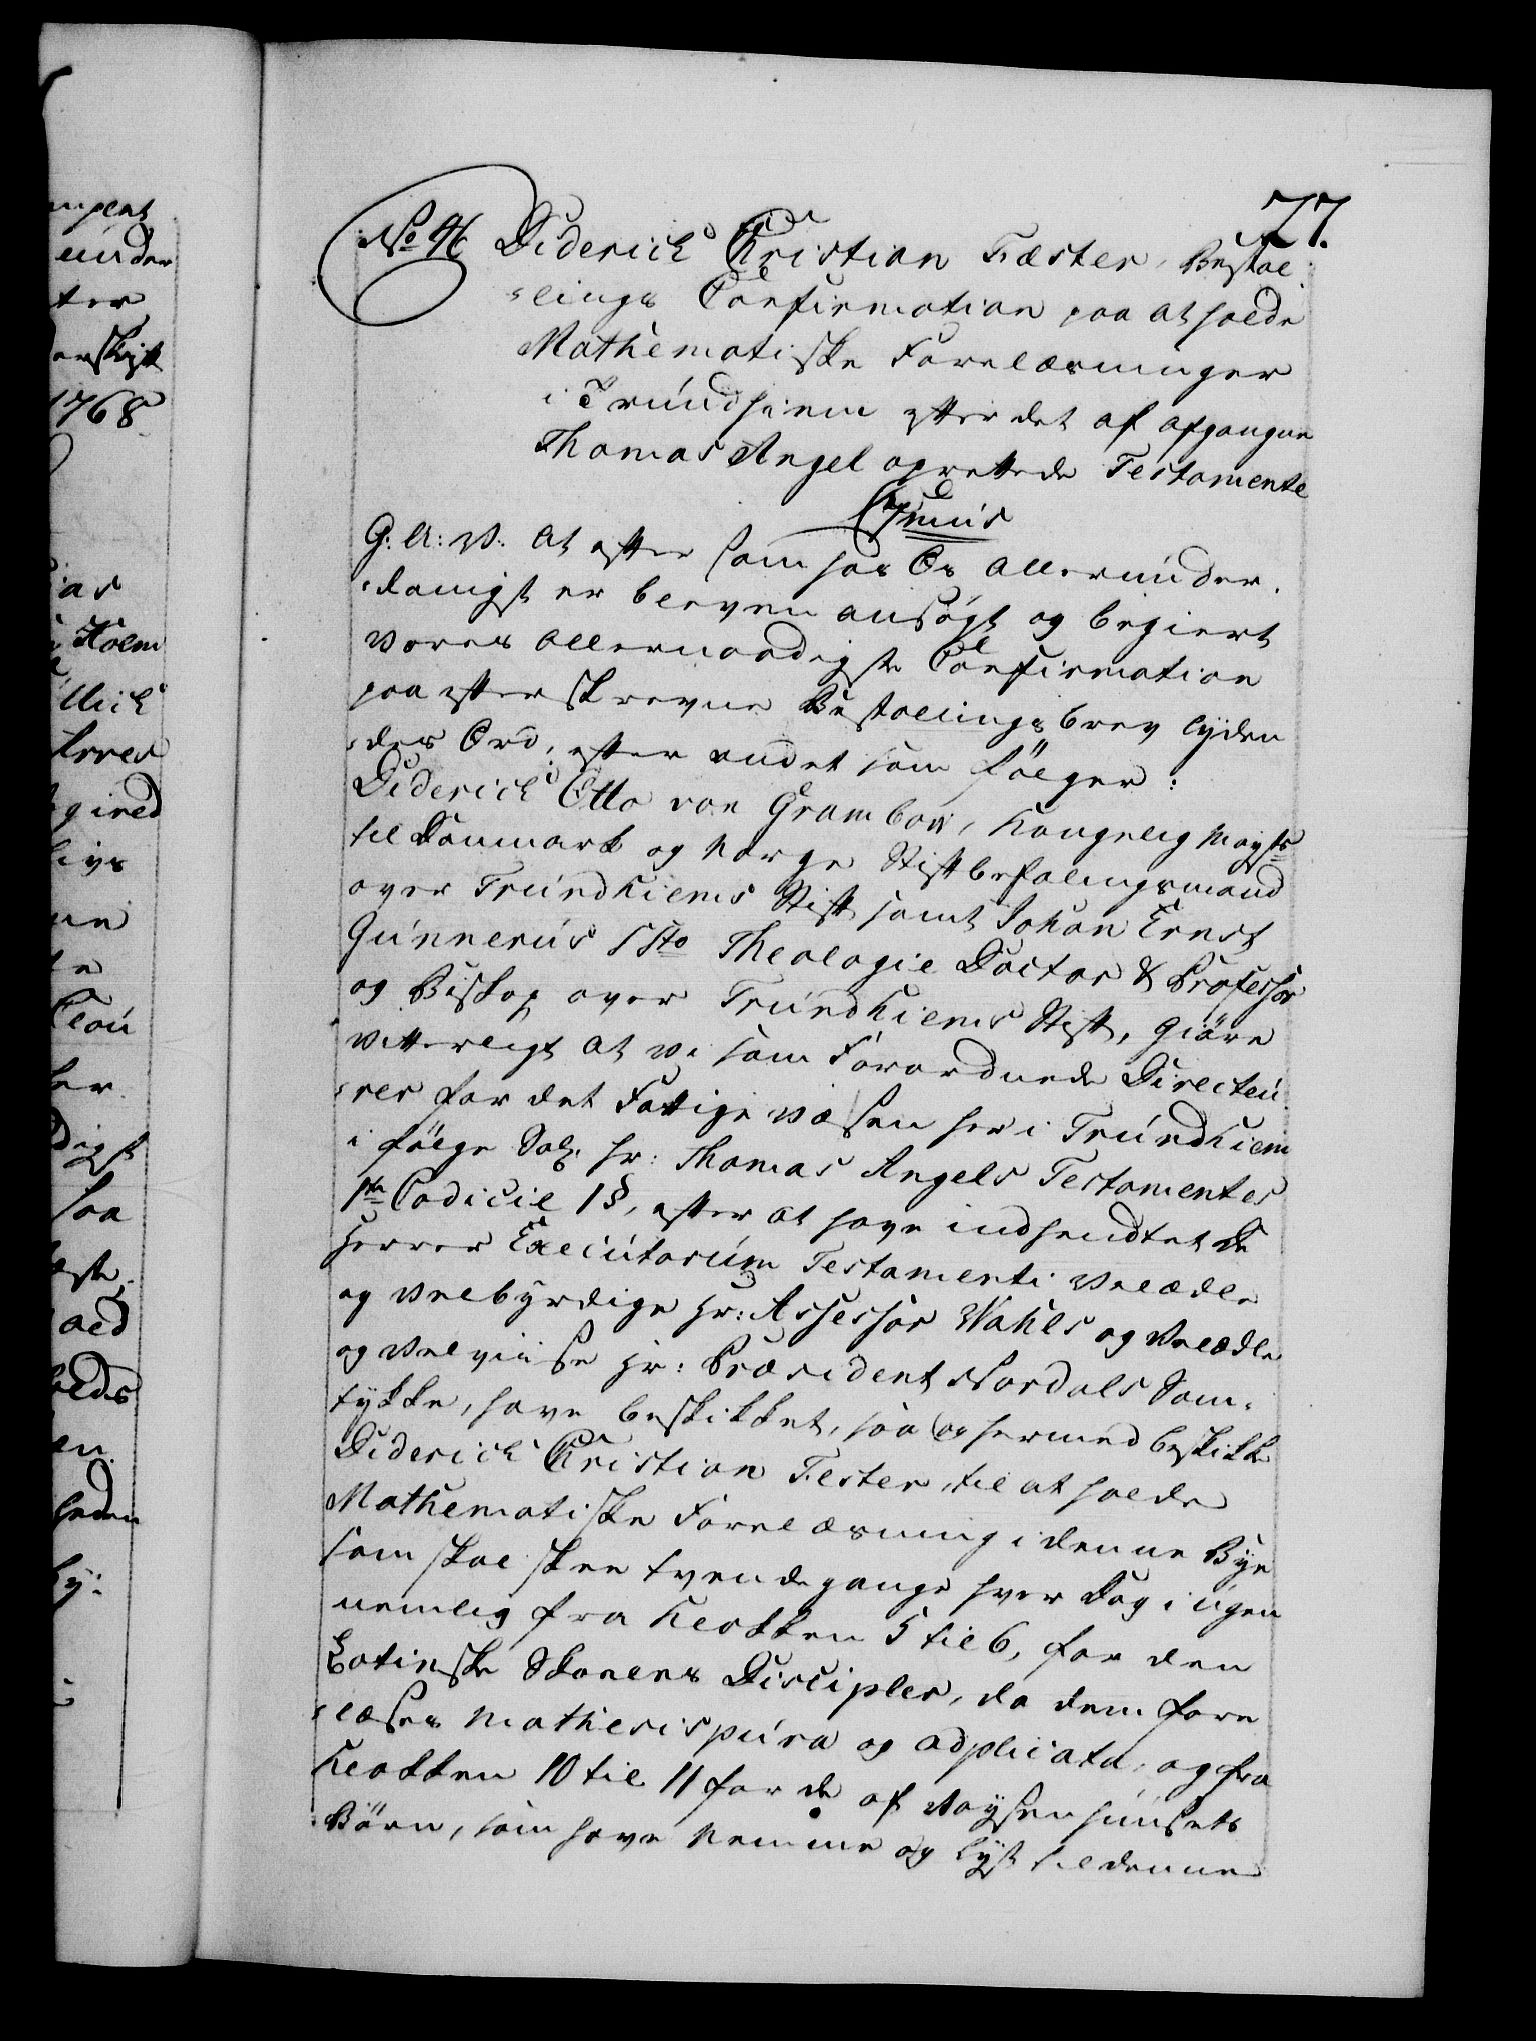 77.
No 46 Diderich Christian Fæster, Bestal¬
¬lings Confirmation paa at holde
Mathematiske Forelæsninger
i Trundhiem efter det af afgangne
Thomas Angel oprettede Testamente
G: A: V: At efter som hos Os Allerunder¬
¬danigst er bleven ansögt og begiert
Vores Allernaadigste Confirmation
paa efterskrevne Bestallings brev lyden
¬des Ord, efter andet som fölger:
Diderich Otto von Grambow, Kongelig Mayts
til Danmark og Norge Stiftbefalingsmand
over Trundhiems Stift samt Johan Ernst
Gunnerus SSto Theologie Doctor & Professor
og Biskop over Trundhiems Stift, Giöre
vitterligt at vi som Forordnede Directeu¬
¬rer for det Fattige Væsen her i Trundhiem
i fölge Sal. Hr: Thomas Angels Testamentes
1te Codicil 1 §, efter at have indhendtet de
Herrer Executorum Testamenti Velædle
og Velbyrdige Hr: Assessor Wahls og Velædle
og Velviise Hr: Præsident Nordals Sam¬
tykke, have beskikket, saa og hermed beskikke
Diderich Christian Fester, til at holde
Mathematiske Forelæsning i denne Bye
som skal skee tvende gange hver Dag i ugen
nemlig fra Klokken 5 til 6, for den
Latinske Skoeles Disciple, da dem fore
¬læses Mathesis pura og adplicata, og fra
Klokken 10 til 11 for de af Waysenhusets
Börn, som have Nemme og Lyst til denne
mpent
under
ter
1768
as
Holm
llich
gired
livs
ne
te
Clau
ker
digst
saa
eds
en
heden